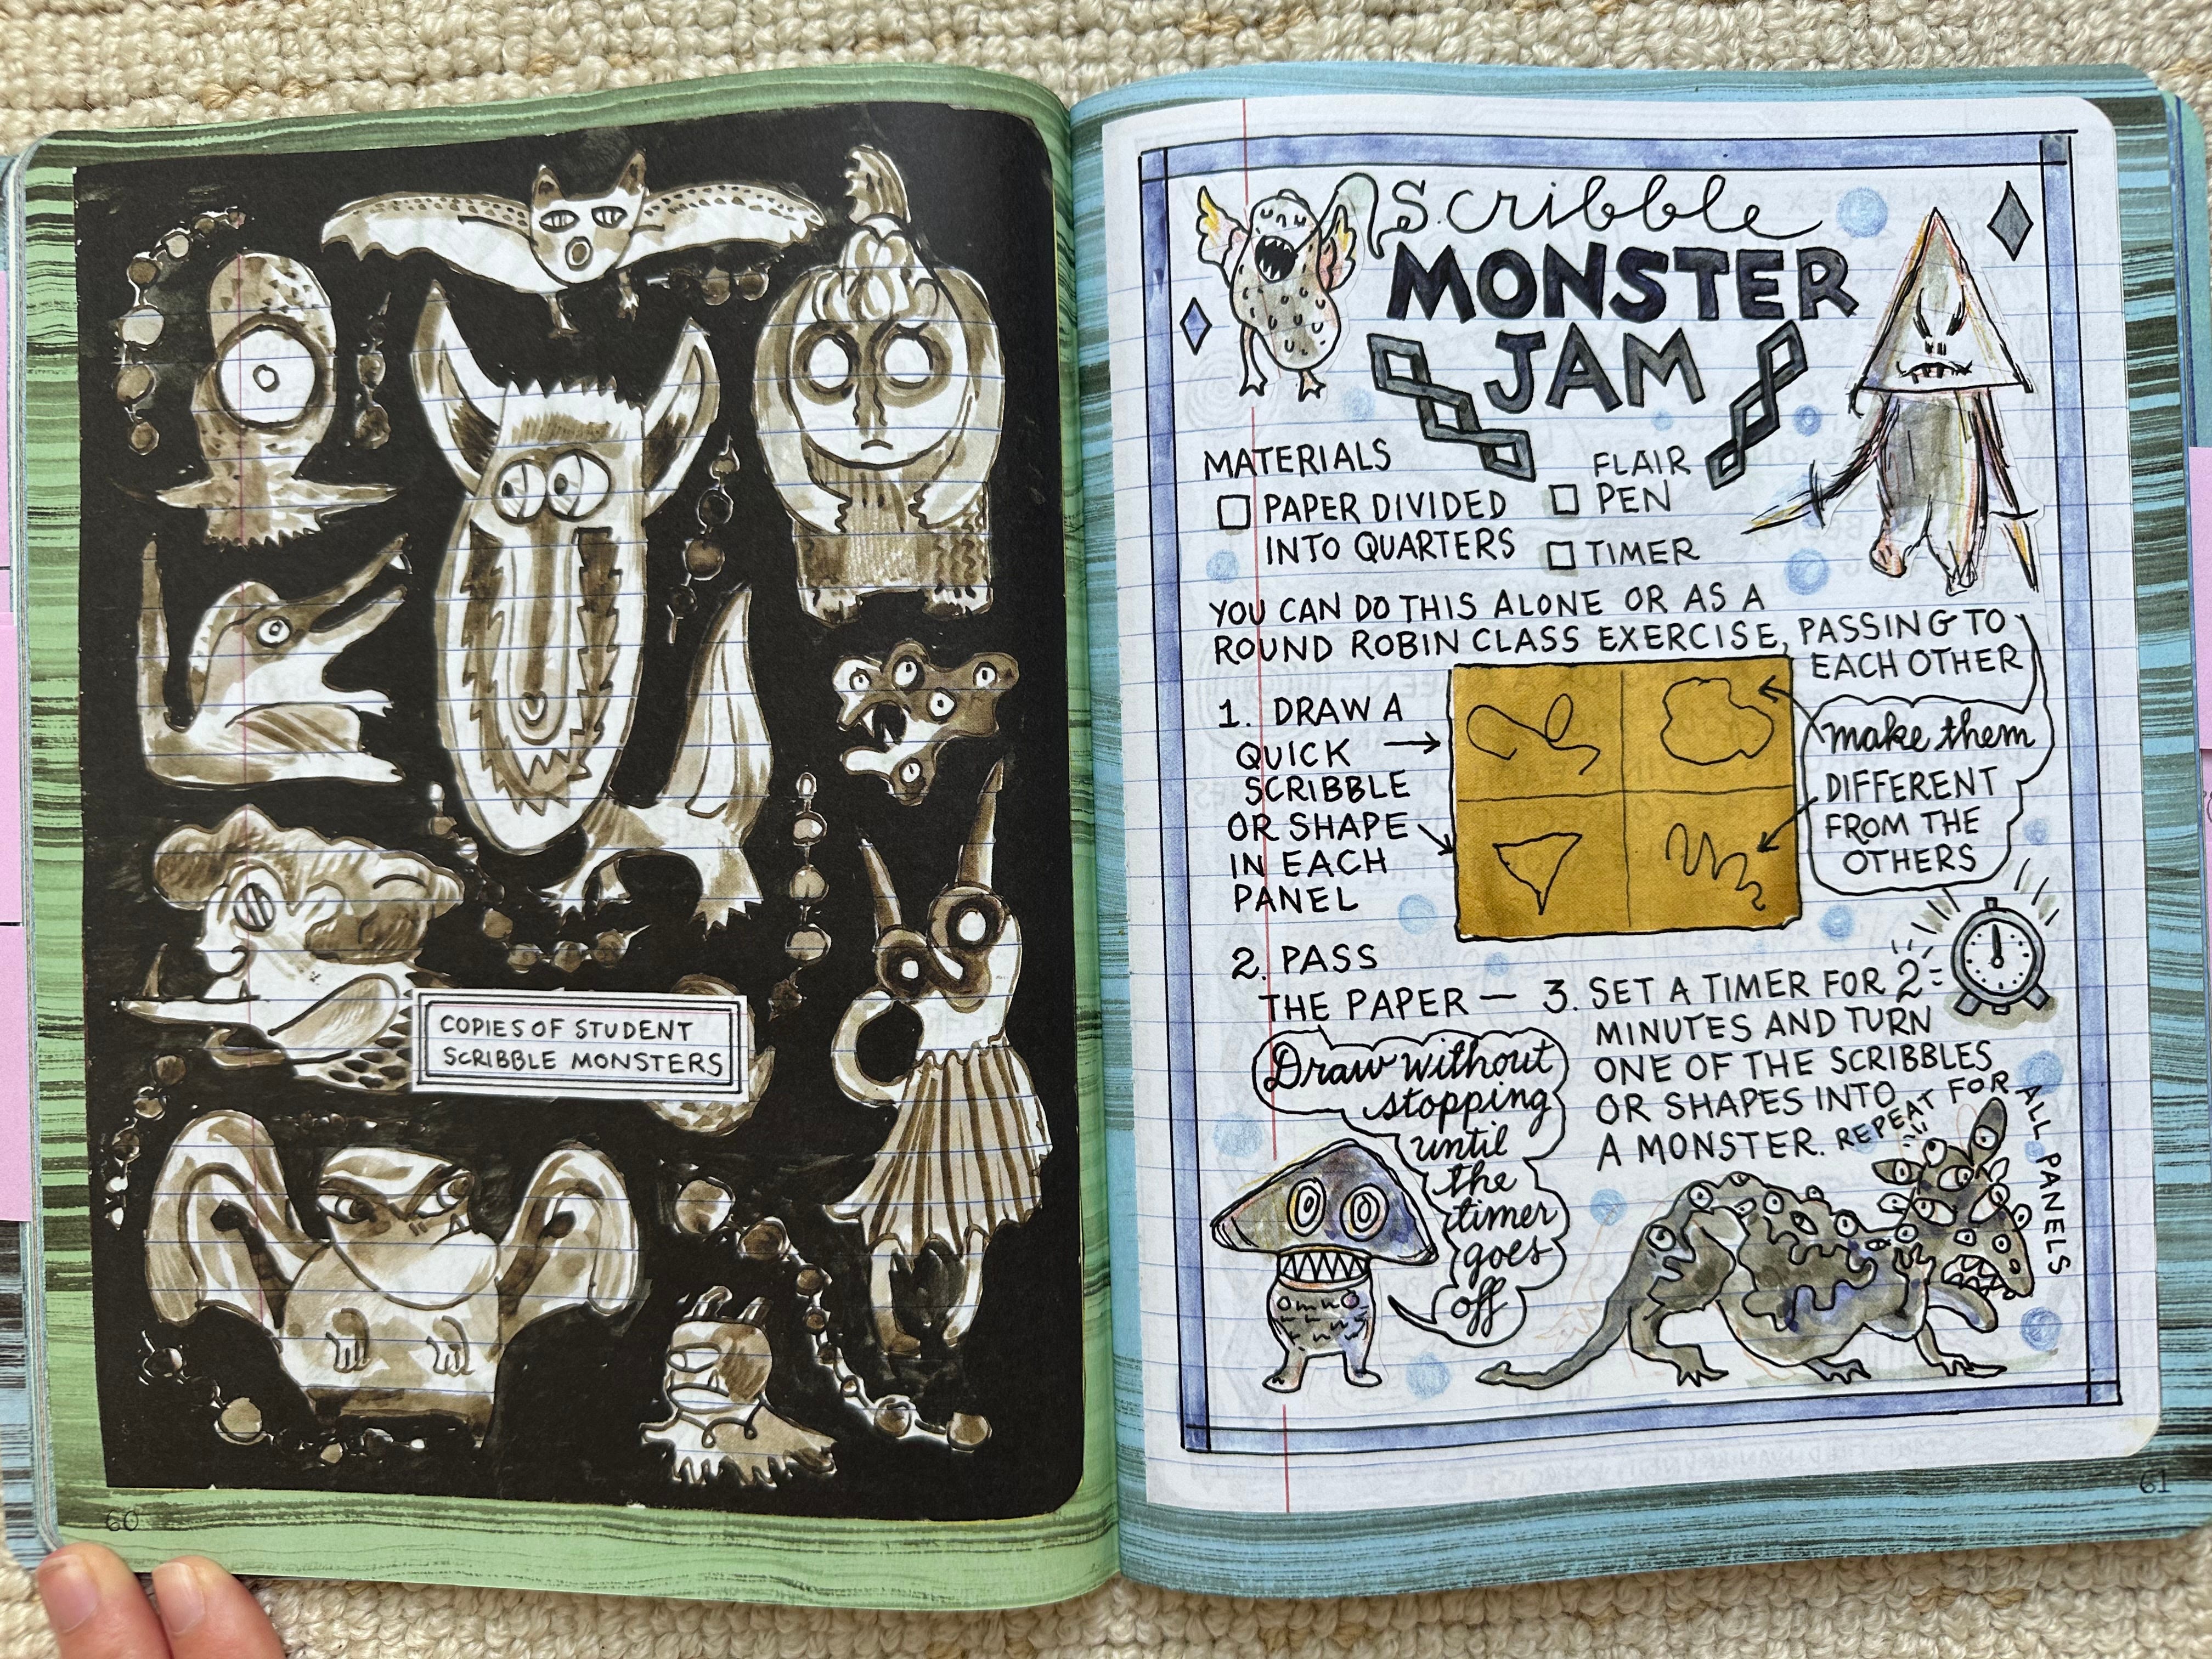 COPIES OF STUDENT
SCRIBBLE MONSTERS
60
Scribble
MONSTER
JAM
MATERIALS
PAPER DIVIDED
INTO QUARTERS
FLAIR
PEN
TIMER
YOU CAN DO THIS ALONE OR AS A
ROUND ROBIN CLASS EXERCISE, PASSING TO
EACH OTHER
1. DRAW A
QUICK
SCRIBBLE
OR SHAPE
IN EACH
PANEL
make them
DIFFERENT
FROM THE
OTHERS
2. PASS
THE PAPER —
3. SET A TIMER FOR 2
MINUTES AND TURN
ONE OF THE SCRIBBLES
OR SHAPES INTO
A MONSTER. REPEAT FOR ALL PANELS
Draw without
stopping
until
the
timer
goes
off
61